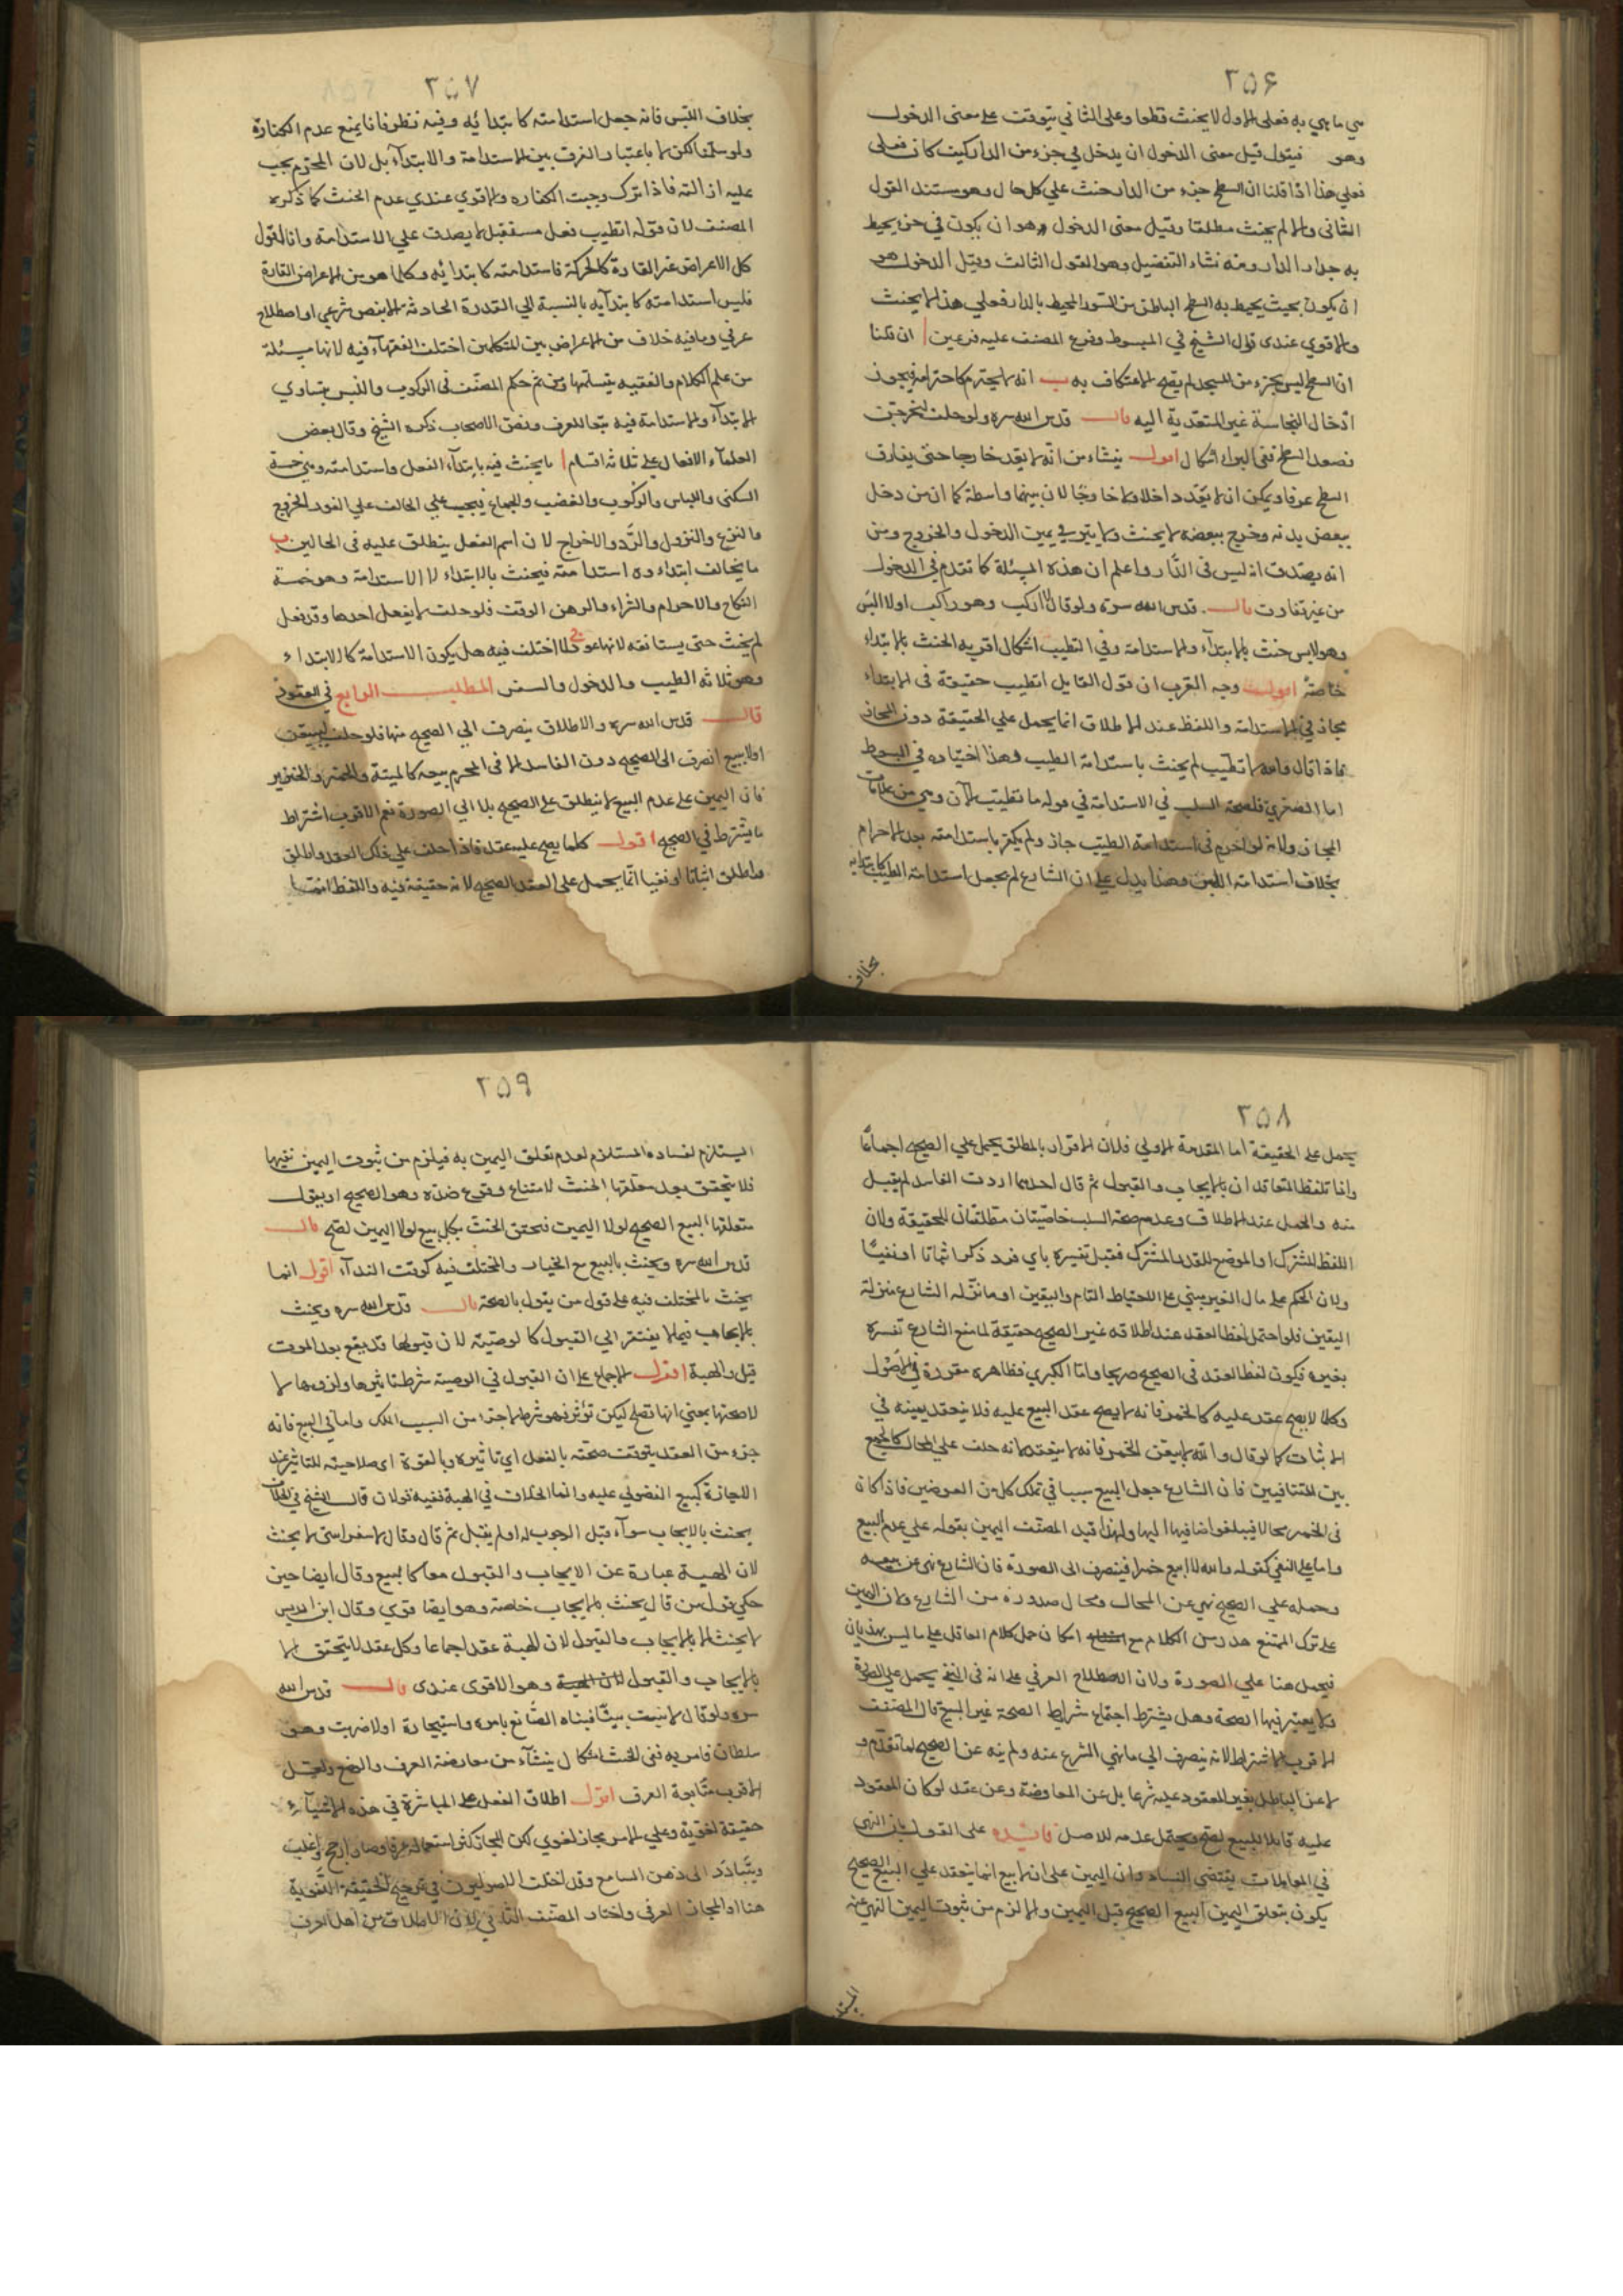 ۲۵۶
هي ما هي به فعلى الاول لا يحنث قطعا وعلى الثاني يتوقف على معنى الدخول
وهو فيقول قيل معنى الدخول ان يدخل في جزء من الدار كيف كان فعلى
فعلي هذا اذا قلنا ان السطح جزء من الدار حنث علي كل حال وهو مستند القول
الثاني والا لم يحنث مطلقا وقيل معنى الدخول هو ان يكون في حيز يحيط
به جدار الدار ومنه نشاء التفصيل وهو القول الثالث وقيل الدخول هو
ان يكون بحيث يحيط به السطح الباطن من السور المحيط بالدار فعلي هذا لا يحنث
والاقوي عندى قول الشيخ في المبسوط وفرع المصنف عليه فرعين ا ان قلنا
ان السطح ليس بجزء من المسجد لم يصح الاعتكاف به ب انه لا يحترم كاحترامه فيجوز
ادخال النجاسة غير المتعدية اليه قال قدس الله سره ولو حلف ليخرجن
فصعد السطح ففي البراء اشكال اقول ينشاء من انه لا يعد خارجا حتى يفارق
السطح عرفا ويمكن ان لا يعد داخلا ولا خارجا لان بينهما واسطة كما ان من دخل
ببعض بدنه وخرج ببعضه لا يحنث ولا يبر في يمين الدخول والخروج ومن
انه يصدق انه ليس فى الدار واعلم ان هذه المسئلة كما تقدم في الدخول
من غير تفاوت قال قدس الله سره ولو قال لا اركب وهو راكب اولا البس
وهو لابس حنث بالابتداء والاستدامة وفي التطيب اشكال اقربه الحنث بالابتداء
خاصة اقول وجه القرب ان قول القايل اتطيب حقيقة فى الابتداء
مجاز في الاستدامة واللفظ عند الاطلاق انما يحمل علي الحقيقة دون المجاز
فاذا قال والله لا تطيب لم يحنث باستدامة الطيب وهذا اختياره في المبسوط
اما الصغري فلصحة السلب في الاستدامة في قوله ما تطيبت الآن وهي من علامات
المجاز ولانه لو احرم فى استدامة الطيب جاز ولم يكفر باستدامته بعد الاحرام
بخلاف استدامة اللبس وهذا يدل علي ان الشارع لم يجعل استدامة الطيب كابتدائه
بخلاف
۲۵۷
بخلاف اللبس فانه جعل استدامته كابتدائه وفيه نظر فانا نمنع عدم الكفارة
ولو سلمنا لكن لا باعتبار الفرق بين الاستدامة والابتداء بل لان المحرم يجب
عليه ازالته فاذا ترك وجبت الكفاره والاقوي عندي عدم الحنث كما ذكره
المصنف لان قوله اتطيب فعل مستقبل لا يصدق علي الاستدامة وانا اقول
كل الاعراض غير القارة كالحركة فاستدامته كابتدائه وكلما هو من الاعراض القارة
فليس استدامته كابتدآيه بالنسبة الي القدرة الحادثة الا بنص شرعي او اصطلاح
عرفي وما فيه خلاف من الاعراض بين المتكلمين اختلف الفقهآء فيه لانها مسئلة
من علم الكلام والفقيه يتسلمها ومن ثم حكم المصنف فى الركوب واللبس بتساوي
الابتدآء والاستدامة فيه تبعا للعرف ونص الاصحاب ذكره الشيخ وقال بعض
العلمآء الافعال على ثلاثة اقسام ا ما يحنث فيه بابتدآء الفعل واستدامته وهي خمسة
السكنى واللباس والركوب والغصب والجماع فيجب علي الحالف علي الفور الخروج
والنزع والنزول والرد والاخراج لان اسم الفعل ينطلق عليه فى الحالين ب
ما يخالف ابتداءه استدامته فيحنث بالابتداء لا الاستدامة وهو خمسة
النكاح والاحرام والشراء والرهن الوقف فلو حلف لا يفعل احدها وقد فعل
لم يحنث حتى يستانفه لانها عقود ج ما اختلف فيه هل يكون الاستدامة كالابتداء
وهو ثلاثه الطيب والدخول والسفر المطلب الرابع في العقود
قال قدس الله سره والاطلاق ينصرف الي الصحيح منها فلو حلف ليبيعن
اولا يبيع انصرف الى الصحيح دون الفاسد الا فى المحرم بيعه كالميتة والخمر والخنزير
فان اليمين على عدم البيع لا ينطلق على الصحيح بل الي الصورة نعم الاقرب اشتراط
ما يشترط في الصحيح اقول كلما يصح عليه عقد فاذا حلف علي ذلك العقد واطلق
واطلق اثباتا او نفيا انما يحمل على العقد الصحيح لانه حقيقة فيه واللفظ انما
۲۵۸
يحمل على الحقيقة اما المقدمة الاولي فلان الاقرار بالمطلق يحمل علي الصحيح اجماعا
واذا تلفظ المتعاقدان بالايجاب والقبول ثم قال احدهما اردت الفاسد لم يقبل
منه والحمل عند الاطلاق وعدم صحة السلب خاصيتان مطلقتان للحقيقة ولان
اللفظ المشترك او الموضوع للقدر المشترك فقبل تفسيره باي فرد ذكر اثباتا او نفيا
ولان الحكم على مال الغير مبني على الاحتياط التام واليقين او ما نزله الشارع منزلة
اليقين فلو احتمل لفظ العقد عند اطلاقه غير الصحيح حقيقة لما منع الشارع تفسيره
بغيره فيكون لفظ العقد فى الصحيح صريحا واما الكبرى فظاهره مقررة في الاصول
وكلما لا يصح عقد عليه كالخمر فانه لا يصح عقد البيع عليه فلا ينعقد يمينه في
الاثبات كما لو قال والله لابيعن الخمر فانه لا ينعقد لانه حلف علي المحال كالجمع
بين المتنافيين فان الشارع جعل البيع سببا في تملك كل من العوضين فاذا كان
فى الخمر محالا فيبلغوا ضافيها اليها ولهذا قيد المصنف اليمين بقوله علي عدم البيع
واما على النفي كقوله والله لا ابيع خمرا فينصرف الى الصورة فان الشارع نهى عن بيعه
وحمله علي الصحيح نهي عن المحال ومحال صدوره من الشارع ولان اليمين
على ترك الممتنع هدر من الكلام مع امكان حمل كلام العاقل على ما ليس بهذيان
فيحمل هنا علي الصورة ولان الاصطلاح العرفي على انه فى النفي يحمل علي الصورة
ولا يعتبر فيها الصحة وهل يشترط اجتماع شرايط الصحة غير المبيع قال المصنف
الاقرب الاشتراط لانه ينصرف الي ما نهي الشرع عنه ولم ينه عن الصحيح لما تقدم و
لا عن الباطل بغير المعقود عليه شرعا بل عن المعاوضة وعن عقد لو كان المعقود
عليه قابلا للبيع لصح ويحتمل عدمه للاصل فائده على القول بان النهي
في المعاملات يقتضي الفساد وان اليمين على ان لا يبيع انما ينعقد علي البيع الصحيح
يكون يتعلق اليمين البيع الصحيح قبل اليمين والا لزم من ثبوت اليمين النهي عنه
۲۵۹
المستلزم لفساده المستلزم لعدم تعلق اليمين به فيلزم من ثبوت اليمين نفيها
فلا يتحقق بعد متعلقها الحنث لامتناع وقوع ضده وهو الصحيح او يقول
متعلقها البيع الصحيح لولا اليمين فتحقق الحنث بكل بيع لولا اليمين لصح قال
قدس الله سره ويحنث بالبيع مع الخيار والمختلف فيه كوقت الندآء اقول انما
يحنث بالمختلف فيه على قول من يقول بالصحة قال قدس الله سره ويحنث
بالايجاب فيما لا يفتقر الي القبول كالوصية لان قبولها قد يقع بعد الموت
قيل والهبة اقول الاجماع على ان القبول في الوصية شرط تاثيرها ولزومها لا
لا صحتها بمعني انها تصلح ليكن تؤثر فهو شرط لا جزء من السبب الملك واما في البيع فانه
جزء من العقد يتوقف صحته بالفعل اي تاثيره وبالقوة اى صلاحيته للتاثير عند
الاجازة كبيع الفضولي عليه وانما الخلاف في الهبة ففيه قولان قال الشيخ في الخلاف
يحنث بالايجاب سوآء قبل الموجوب له او لم يقبل ثم قال وقال لاستقرا سنى لا يحنث
لان الهبة عبارة عن الايجاب والقبول معا كالبيع وقال ايضا حين
حكي قول من قال يحنث بالايجاب خاصة وهو ايضا قوي وقال ابن ادريس
لا يحنث الا بالايجاب والقبول لان الهبة عقد اجماعا وكل عقد لا يتحقق الا
بالايجاب والقبول وهو الاقوى عندى قال قدس الله
سره ولو قال لا بنيت بيتا فبناه الصانع بامره واستيجاره اولا ضربت وهو
سلطان فامر به ففي الحنث اشكال ينشآء من معارضة العرف والوضع ولعل
الاقرب متابعة العرف اقول اطلاق الفعل على المباشرة في هذه الاشيآء
حقيقة لغوية وعلي الامر مجاز لغوي لكن المجاز كثر استعماله عرفا وصار ارجح واغلب
ويتبادر الى ذهن السامع وقد اختلف الاصوليون في ترجيح الحقيقة اللغوية
هنا او المجاز العرفى واختار المصنف الثاني لان الاطلاق من اهل العرف